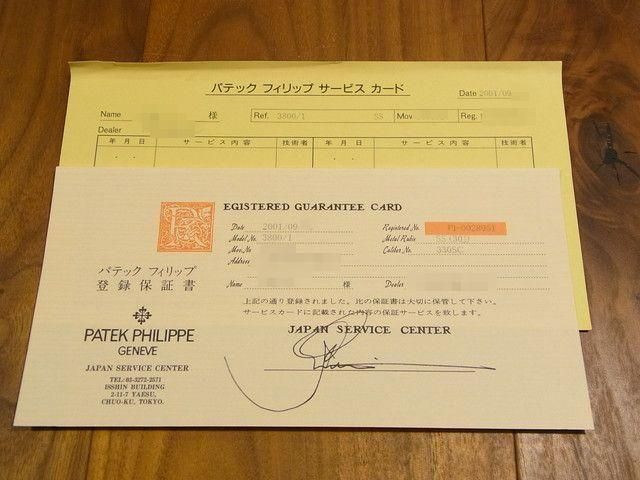 パテック フィリップ サービス カード
Date 2001/09
Name 様 Ref. 3800/1 SS Mov. Reg.
Dealer
年 月 日 サ ー ビ ス 内 容 技術者 年 月 日 サ ー ビ ス 内 容 技術者
REGISTERED GUARANTEE CARD
Date 2001/09 Registered No.
Model No. 3800/1 Metal Ratio SS (303)
Mov. No Caliber No. 330SC
Address
Name 様 Dealer
上記の通り登録されました。此の保証書は大切に保管して下さい。
サービスカードに記載された内容の保証サービスを致します。
JAPAN SERVICE CENTER
パテック フィリップ
登録保証書
PATEK PHILIPPE
GENEVE
JAPAN SERVICE CENTER
TEL: 03-3272-2571
ISSHIN BUILDING
2-11-7 YAESU,
CHUO-KU, TOKYO.